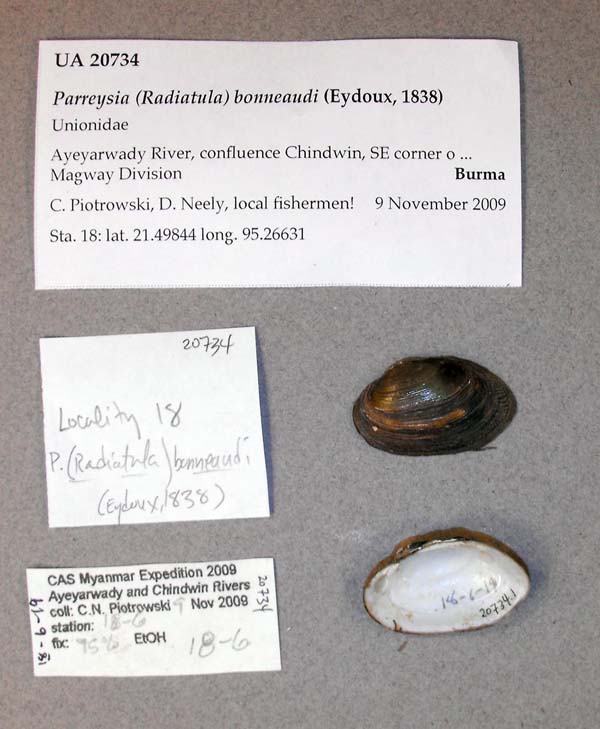 UA 20734
Parreysia (Radiatula) bonneaudi (Eydoux, 1838)
Unionidae
Ayeyarwady River, confluence Chindwin, SE corner o ...
Magway Division Burma
C. Piotrowski, D. Neely, local fishermen! 9 November 2009
Sta. 18: lat. 21.49844 long. 95.26631
20734
Locality 18
P. (Radiatula) bonneaudi
(Eydoux, 1838)
CAS Myanmar Expedition 2009
Ayeyarwady and Chindwin Rivers
coll: C.N. Piotrowski 9 Nov 2009
station: 18-6
fix: 95% EtOH 18-6
20734
18-6-19
18-6-19
20734.1